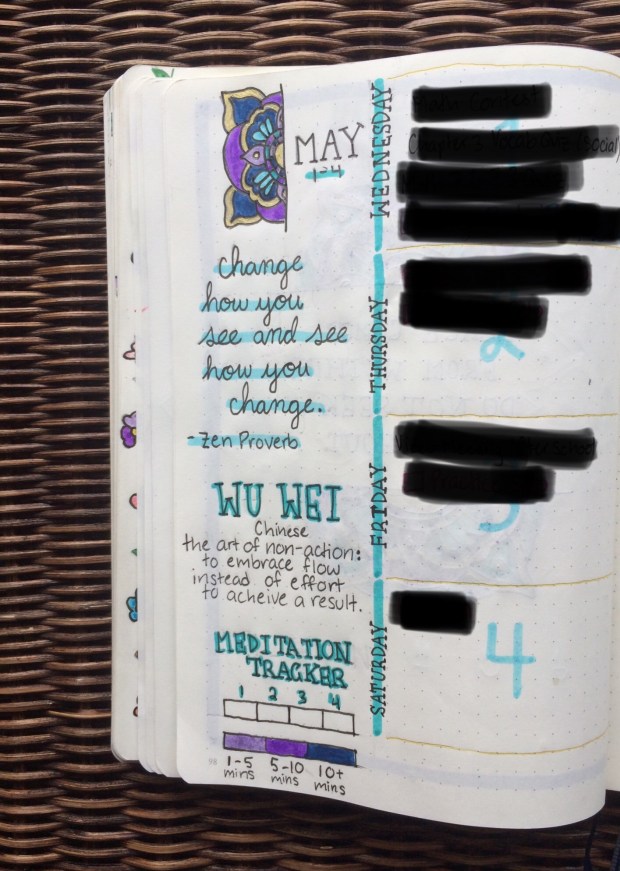 MAY
1-4
change
how you
see and see
how you
change.
-Zen Proverb
WU WEI
Chinese
the art of non-action:
to embrace flow
instead of effort
to acheive a result.
MEDITATION
TRACKER
1 2 3 4
1-5 5-10 10+
mins mins mins
WEDNESDAY
THURSDAY
2
FRIDAY
SATURDAY
4